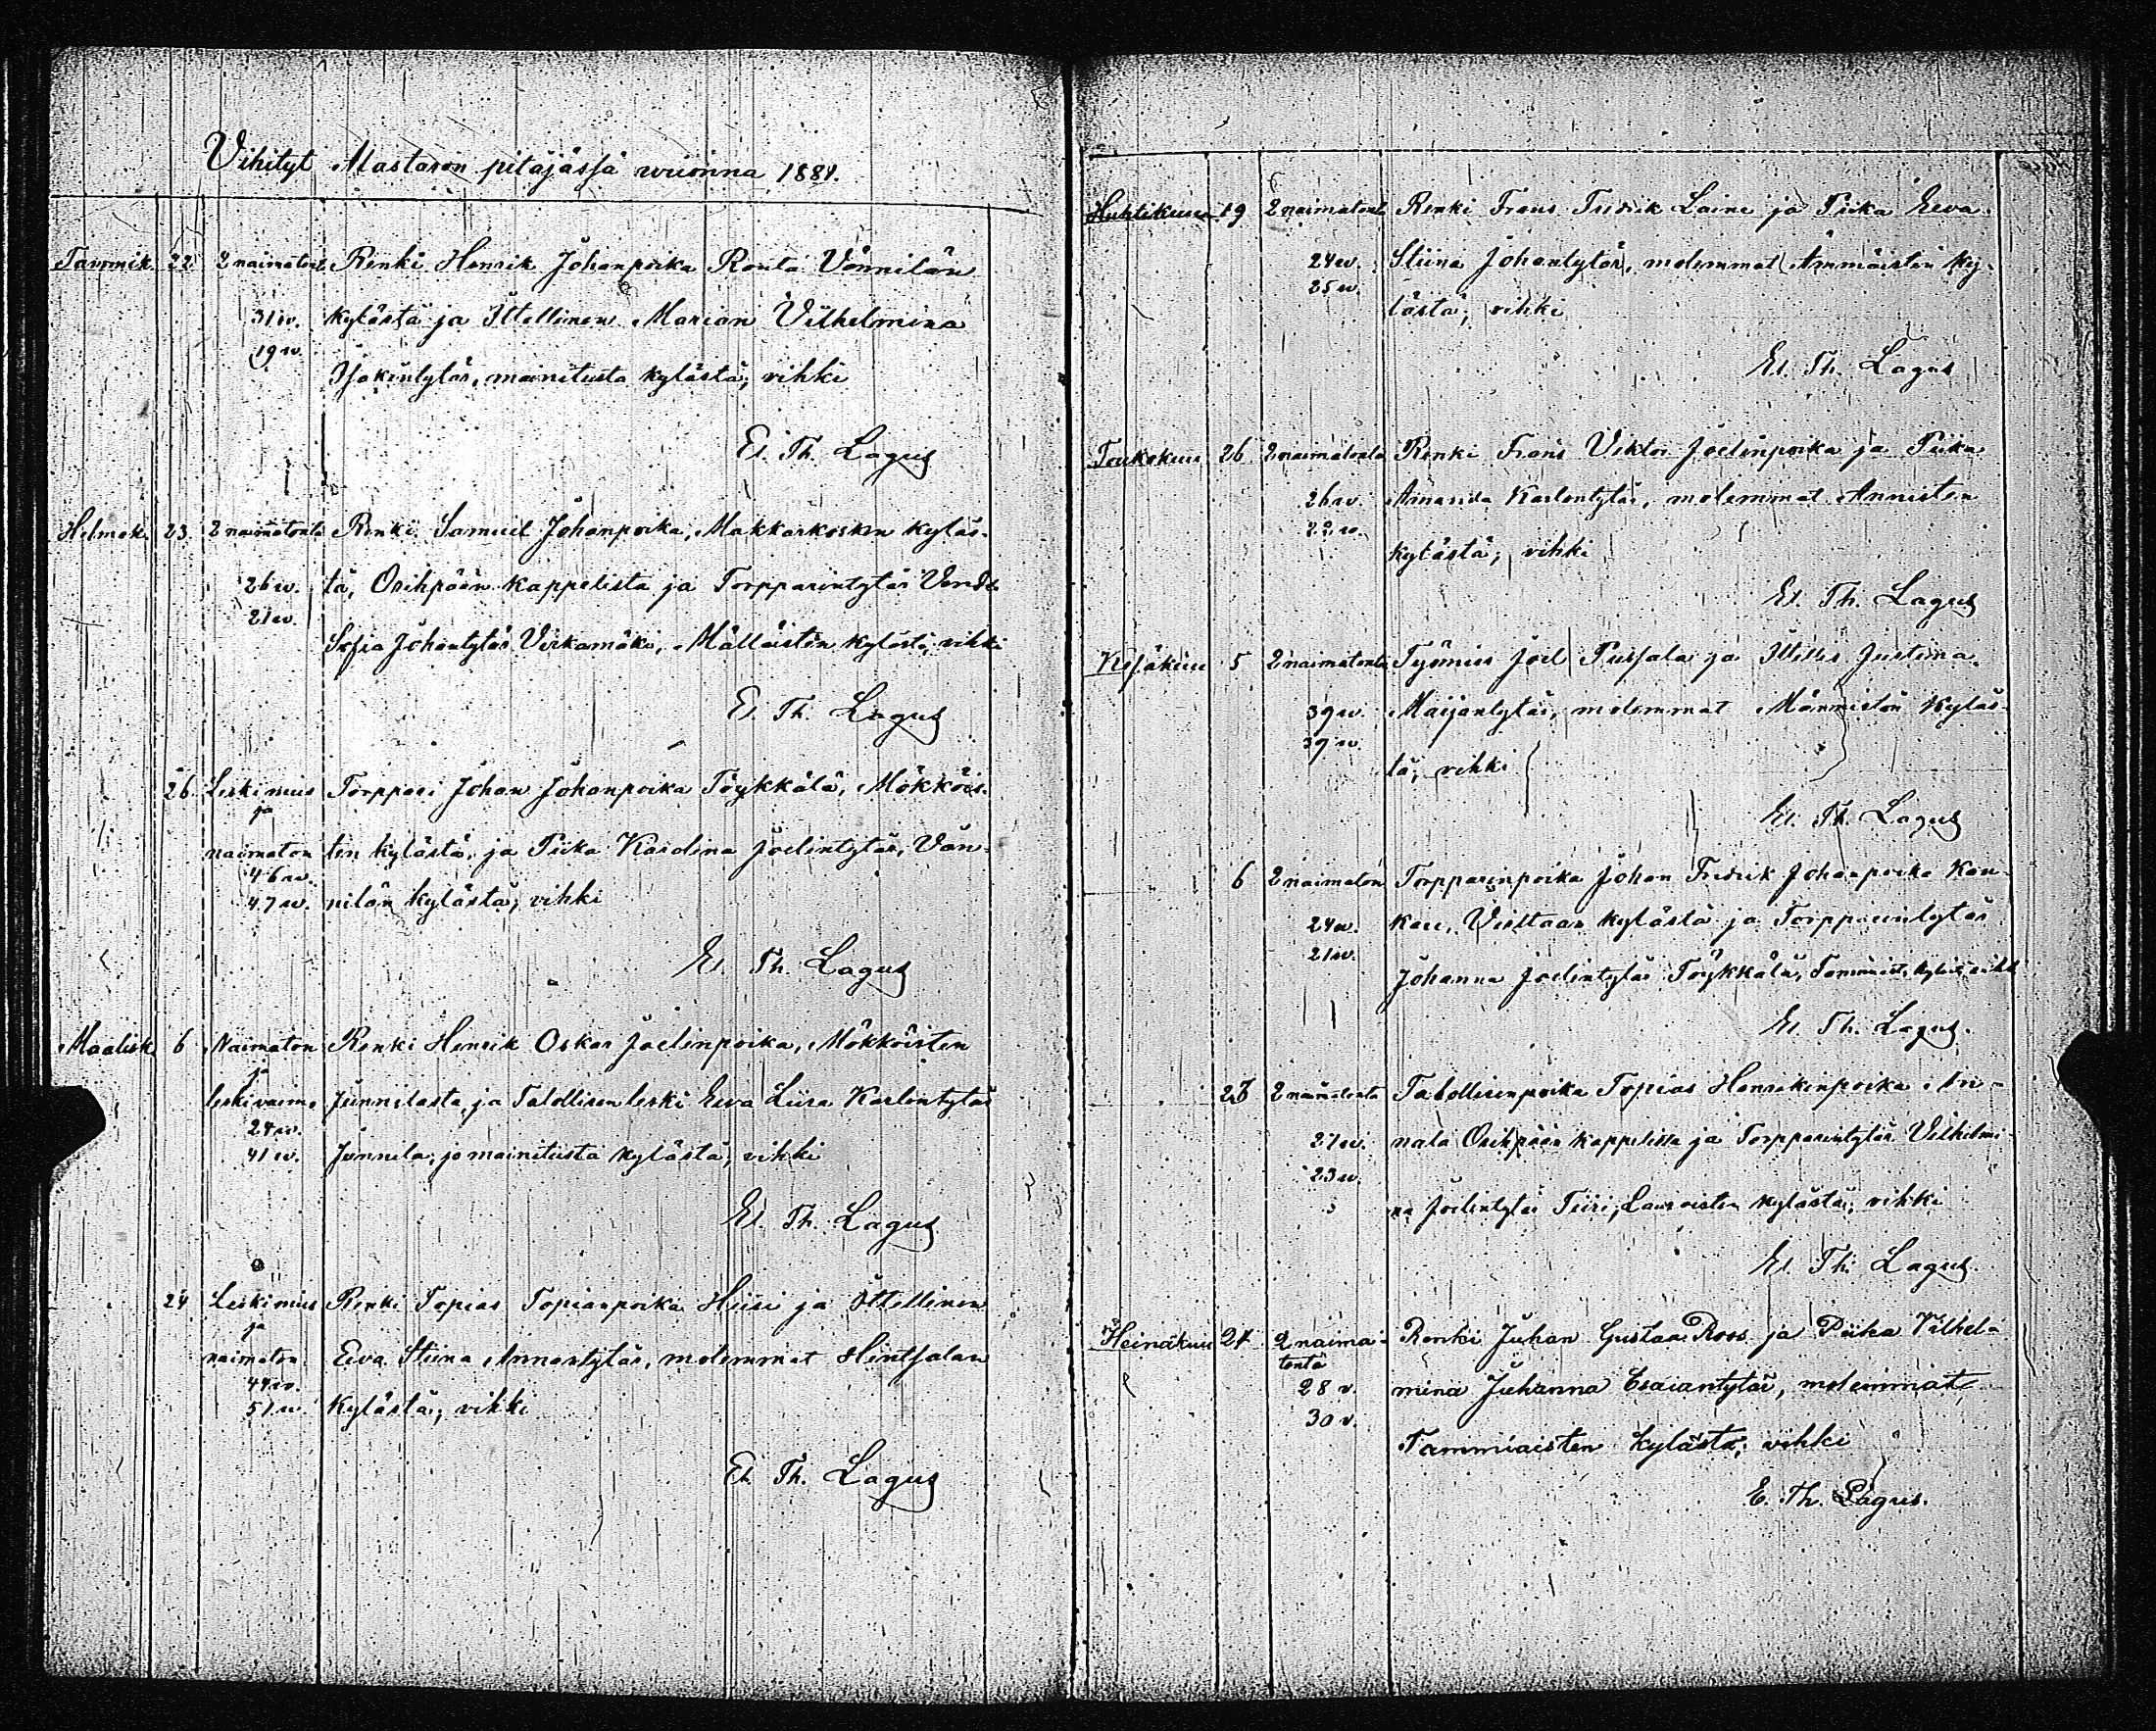 Vihityt Maskun pitäjässä wuonna 1881.
Tammik. 22 2 naimatont. Renki Henrik Johanpoika Ronta Vännilän
31 w. kylästä ja Ittellinen Marian Vilhelmina
19 w.
Isakintytär, mainitusta kylästä; vihki
El. Th. Lagus
Helmik. 23 2 naimatonta Renki Samuel Johanpoika, Makkarkosken kyläs-
26 w. tä, Orihpään kappelista ja Torpparintytär Vend.
21 w.
Sofia Johantytär Virkamäki, Mälläisten kylästä; vihki
El. Th. Lagus
26 Leskimies Torppari Johan Johanpoika Töykkälä, Mökköis-
ja
naimaton ten kylästä, ja Piika Karolina Joelintytär, Vän-
46 w.
47 w. nilän kylästä; vihki
El. Th. Lagus
Maalisk. 6 Naimaton Renki Henrik Oskar Joelinpoika, Mökköisten
ja
leskivaimo Junnilasta, ja Talollisen leski Eeva Liisa Karlontytär
24 w.
41 w. Junnila, jo mainitusta kylästä; vihki
El. Th. Lagus
24 Leskimies Renki Topias Topianpoika Hiisi ja Ittellinen
ja
naimaton Eeva Stiina Annantytär, molemmat Hintsalan
44 w.
51 w. kylästä; vihki
El. Th. Lagus
Huhtikuu 19 2 naimatonta Renki Frans Fredrik Laine ja Piika Eeva
24 w. Stiina Johantytär, molemmat Ämmäisten ky-
25 w.
lästä; vihki
El. Th. Lagus
Toukokuu 26 2 naimatonta Renki Frans Viktor Joelinpoika ja Piika
26 w. Amanda Karlontytär, molemmat Annisten
kylästä; vihki
El. Th. Lagus
Kesäkuu 5 2 naimatonta Työmies Joel Pussala ja Ittellis Justina
39 w. Maijantytär, molemmat Männistön kyläs-
39 w.
tä; vihki
El. Th. Lagus
6 2 naimaton Torpparinpoika Johan Fredrik Johanpoika Kau-
24 w. kau, Virttaan kylästä ja Torpparintytär
21 w.
Johanna Joelintytär Töykkälä, Tammiaist. kyläst. vihki
El. Th. Lagus.
2 naimatonta Talollisenpoika Topias Henrikinpoika An-
27 w. nala Orihpään kappelissa ja Torpparintytär Vilhelmi-
23 w.
na Joelintytär Tiiri, kylästä; vihki
El. Th. Lagus.
Heinäkuu 24 2 naima- Renki Juhan Gustaa Roos ja Piika Vilhel-
tonta
28 v. mina Juhanna Esaiantytär, molemmat
30 v.
Tammiaisten kylästä; vihki
E. Th. Lagus.